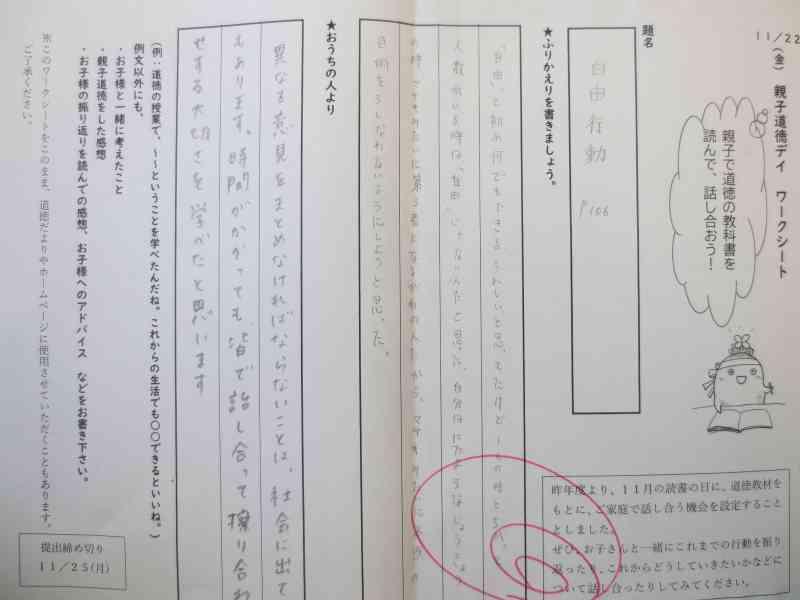 11/22(金) 親子道徳デイ ワークシート
親子で道徳の教科書を
読んで、話し合おう!
題名
自由行動 P106
昨年度より、11月の読書の日に、道徳教材を
もとに、ご家庭で話し合う機会を設定すること
としました。
ぜひ、お子さんと一緒にこれまでの行動を振り
返ったり、これからどうしていきたいかなどに
ついて話し合ったりしてみてください。
★ふりかえりを書きましょう。
「自由」と初め何でもできるうれしいと思ったけど
人数がいる時は、「自由」じゃないんだと思った。自分は
の時、マサキみたいに第3者となるがわの人だから、マサキみたいに
自由をうしなわないようにしようと思った。
★おうちの人より
異なる意見をまとめなければならないことは、社会に出て
もあります。時間がかかっても、皆で話し合って擦り合わ
せする大切さを学べたと思います
(例:道徳の授業で、~~ということを学べたんだね。これからの生活でも〇〇できるといいね。)
例文以外にも、
・お子様と一緒に考えたこと
・親子道徳をした感想
・お子様の振り返りを読んでの感想、お子様へのアドバイス などをお書き下さい。
※このワークシートをこのまま、道徳だよりやホームページに使用させていただくこともあります。
ご了承ください。
提出締め切り
11/25(月)